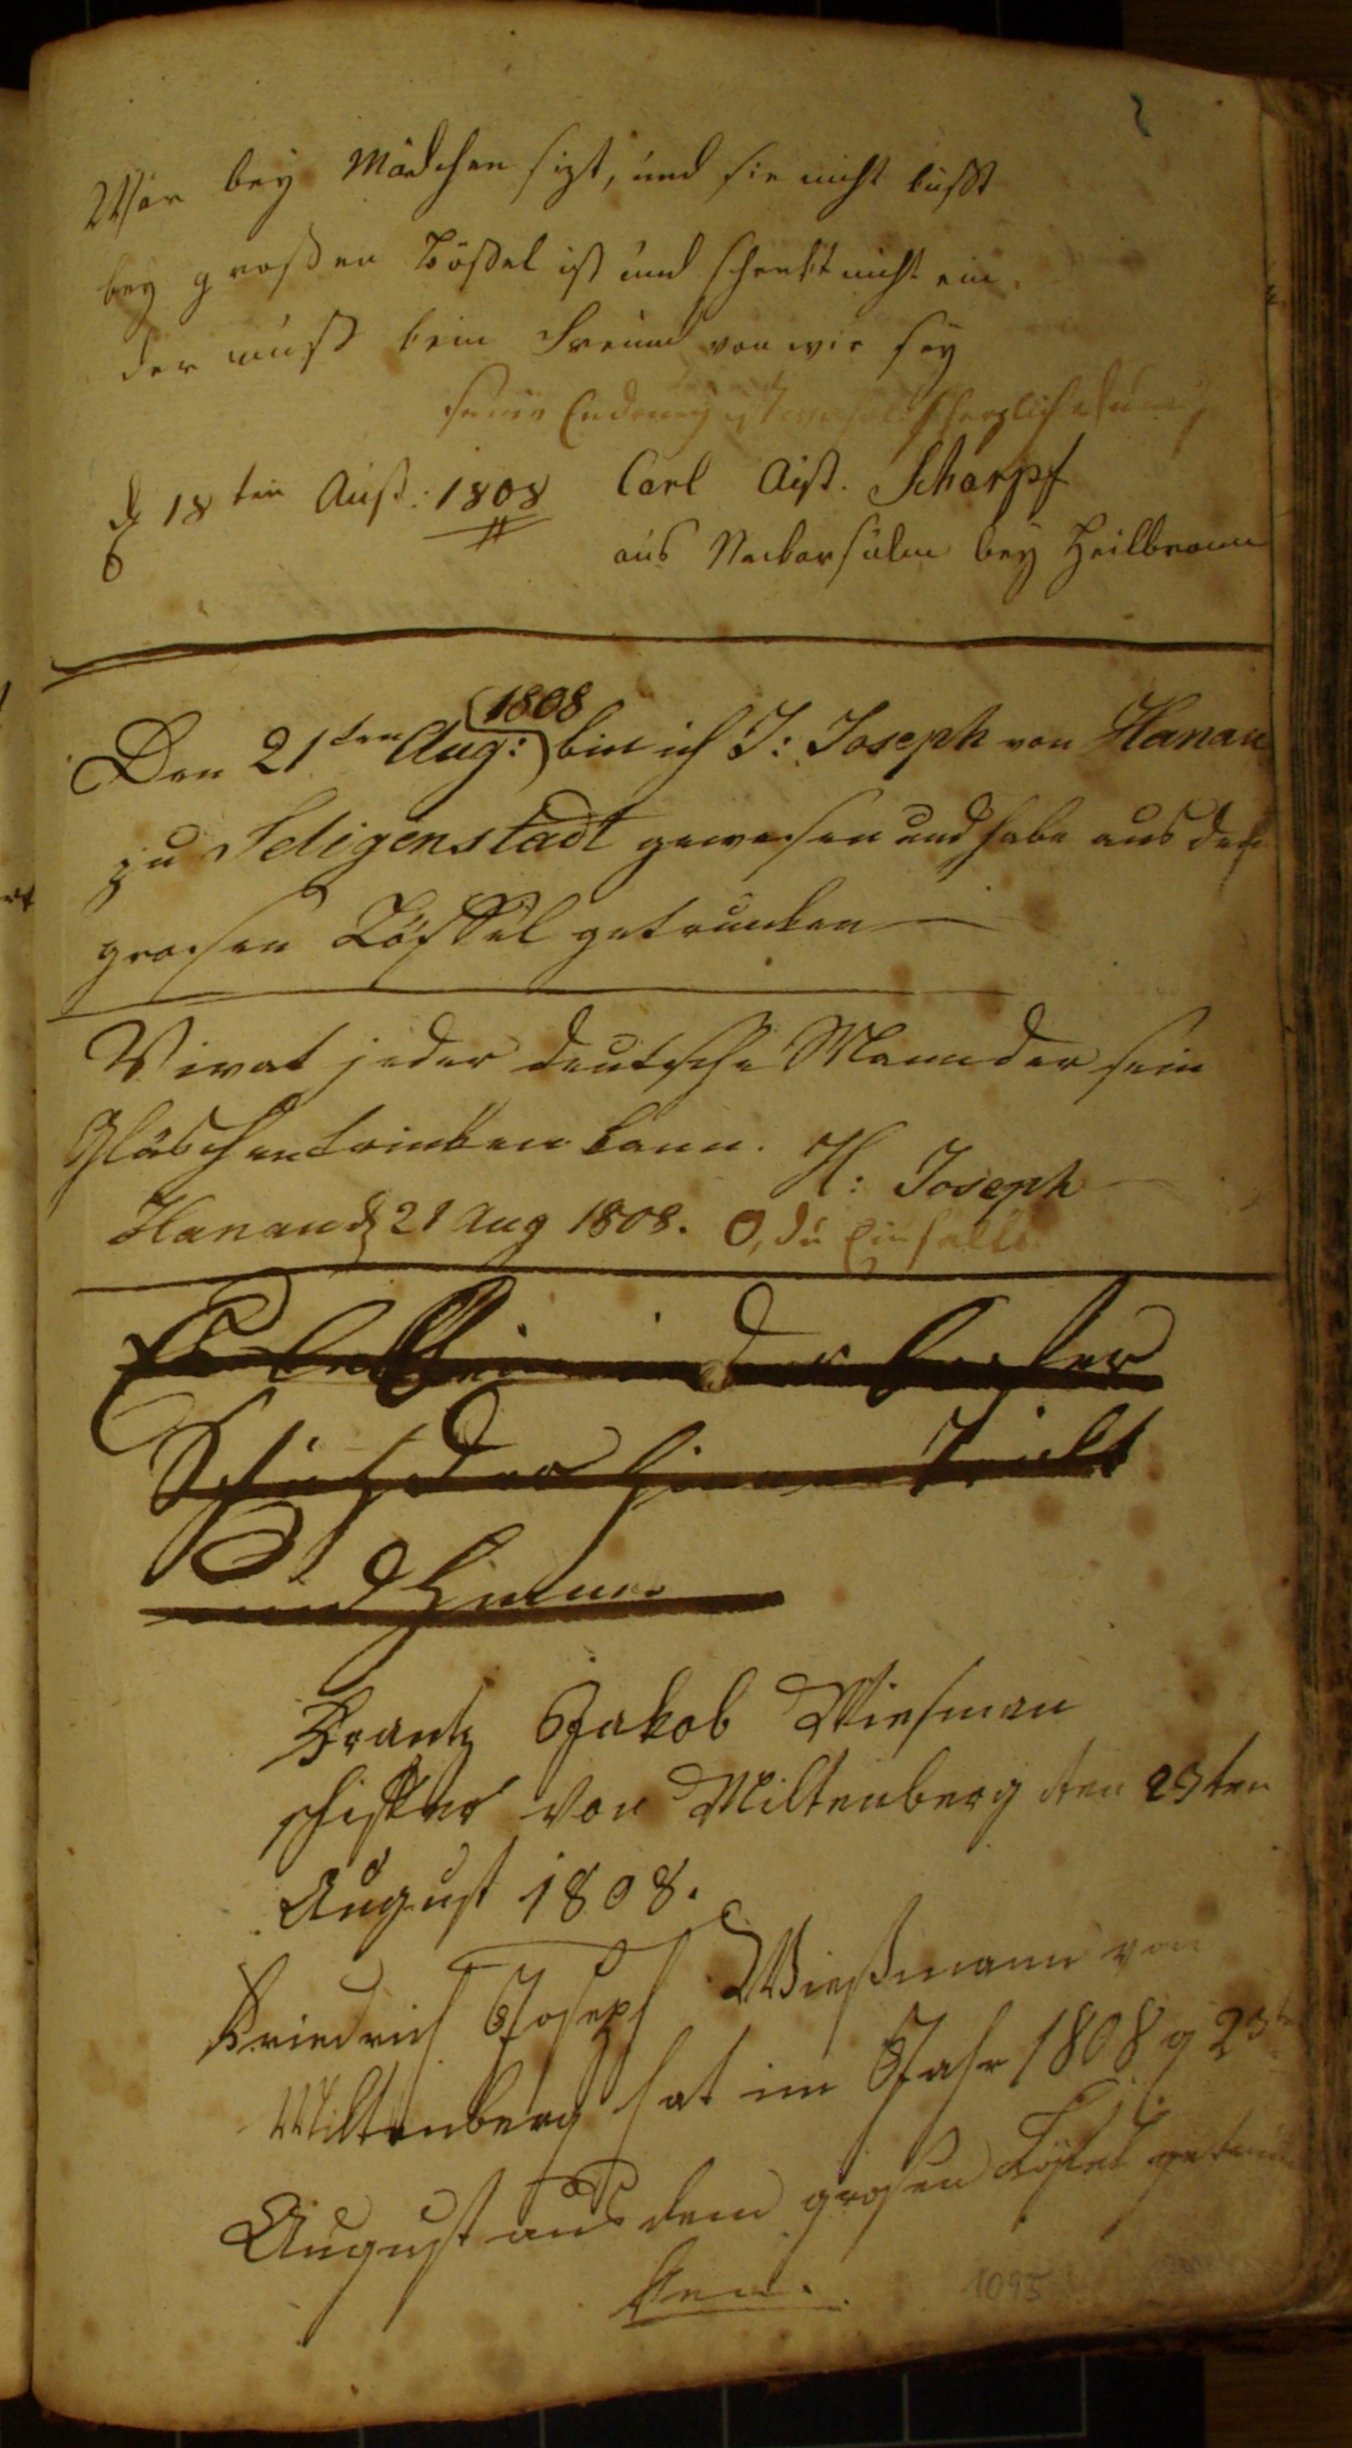 Wer bey Mädchen sizt, und sie nicht küßt
bey großen Lößel ist und schenkt nicht ein
der muß kein Freund von wir sey
seine
d 18ten Aust: 1808 Carl Scharpf
aus Neckarsulm bey Heilbronn
1808
Den 21ten Aug: bin ich J: Joseph von Hanau
zu Seligenstadt gewesen und habe aus dem
grosen Löffel getruncken
Vivat jeder deutsche Mann der sein
Gläschen trinken kann. H: Joseph
Hanau d 21 Aug 1808. O, du Einfalt
der
der
und
Frantz Jakob Wiesman
schiffer von Miltenberg den 23ten
August 1808.
Friedrich Joseph Wießmann von
Miltenberg hat im Jahr 1808 d 23t
August aus dem grosen Löffel getrun
ken.
1095